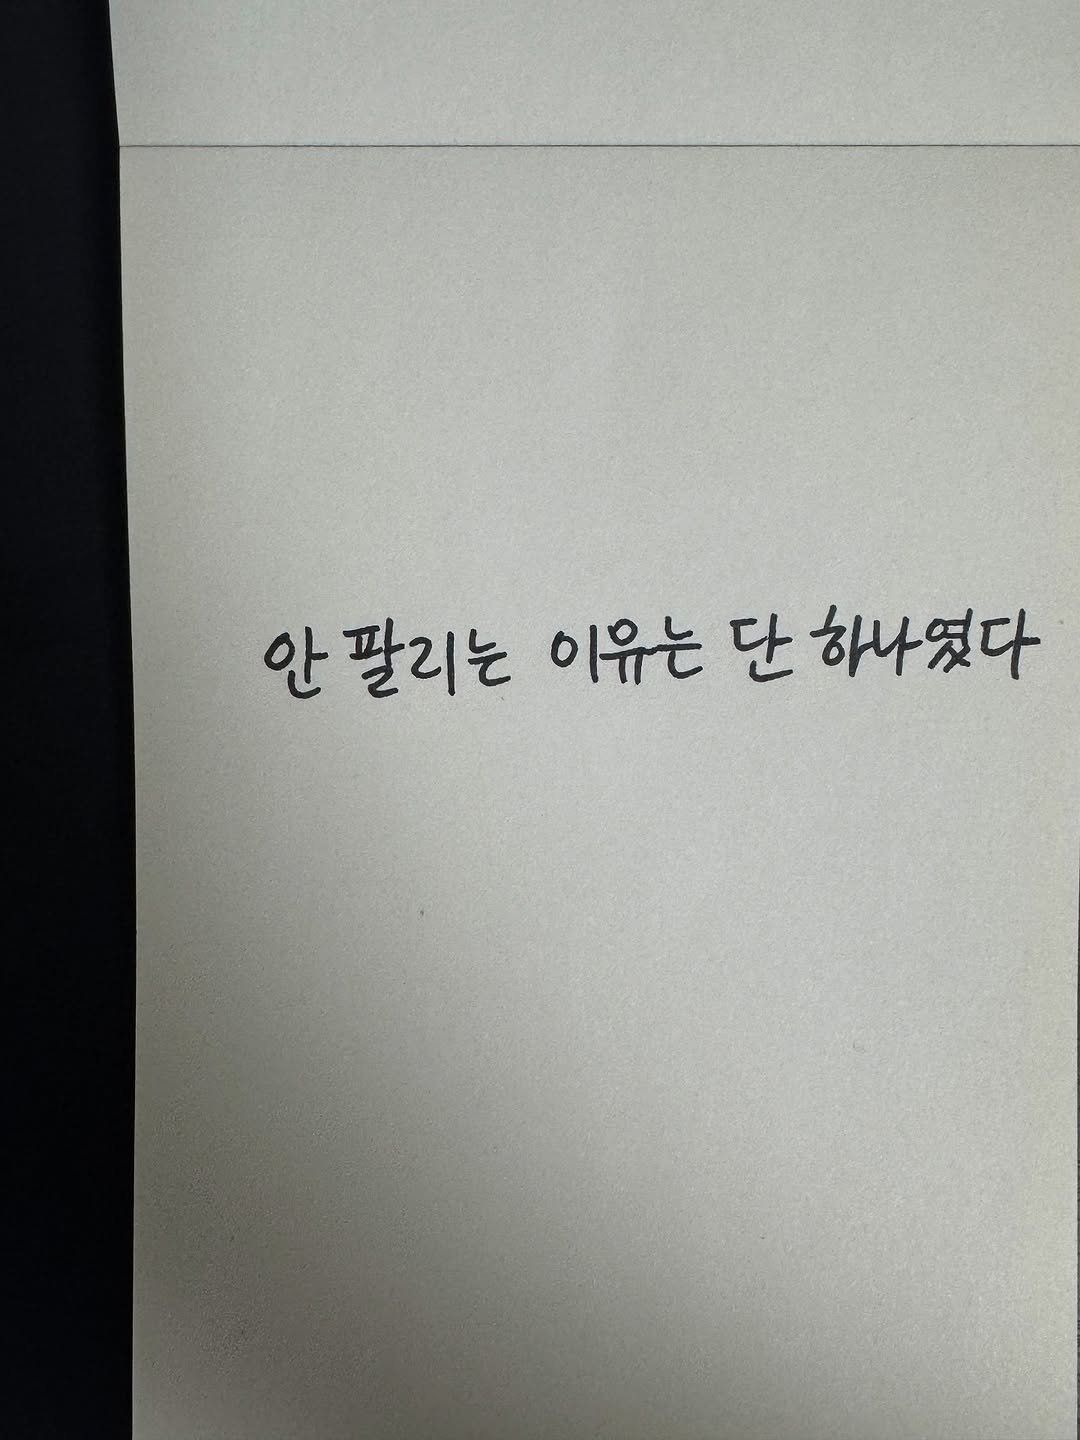 안 팔리는 이유는 단 하나였다